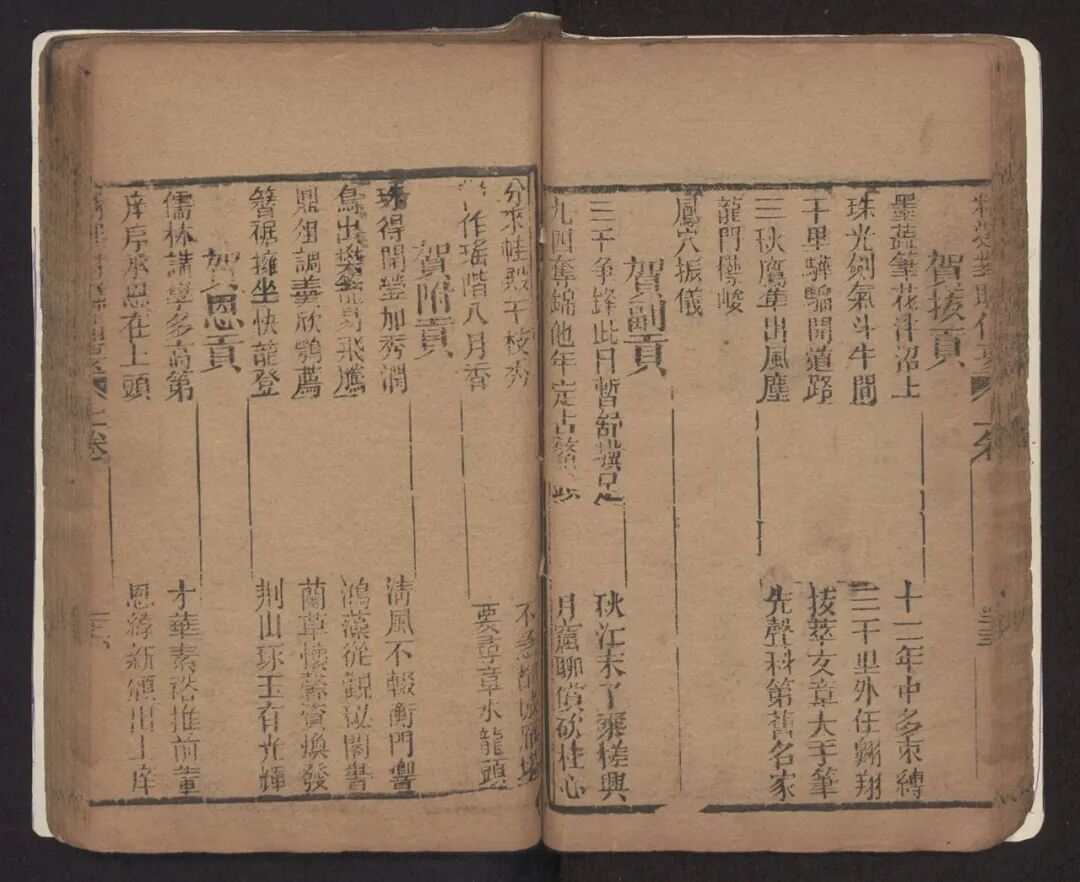 賀拔貢
墨藍筆花泮沼上 十二年中多束縛
珠光劍氣斗牛間 三千里外任翱翔
千里驊騮開道路 拔萃文章大手筆
三秋鷹隼出風塵 先聲科第舊名家
龍門標峻
鳳穴振儀
賀副貢
三千争鋒此日暫舒驥足 秋江未了乘槎興
九四奪錦他年定占 月窟聊償砍桂心
分來桂殿千枝秀 不
作瑤階八月香 要尋章水龍頭
賀附貢
珠得開瑩加秀潤 清風不輟衡門響
鳥出樊籠易飛騰 鴻藻從觀秘閣書
鼎俎調羹欣鶚薦 蘭草懷馨資煥發
簪裾擁坐快龍登 荊山琢玉有光輝
賀恩貢
儒林講學多高第 才華素裕推前輩
庠序承恩在上頭 恩綍新頒出上庠
上卷